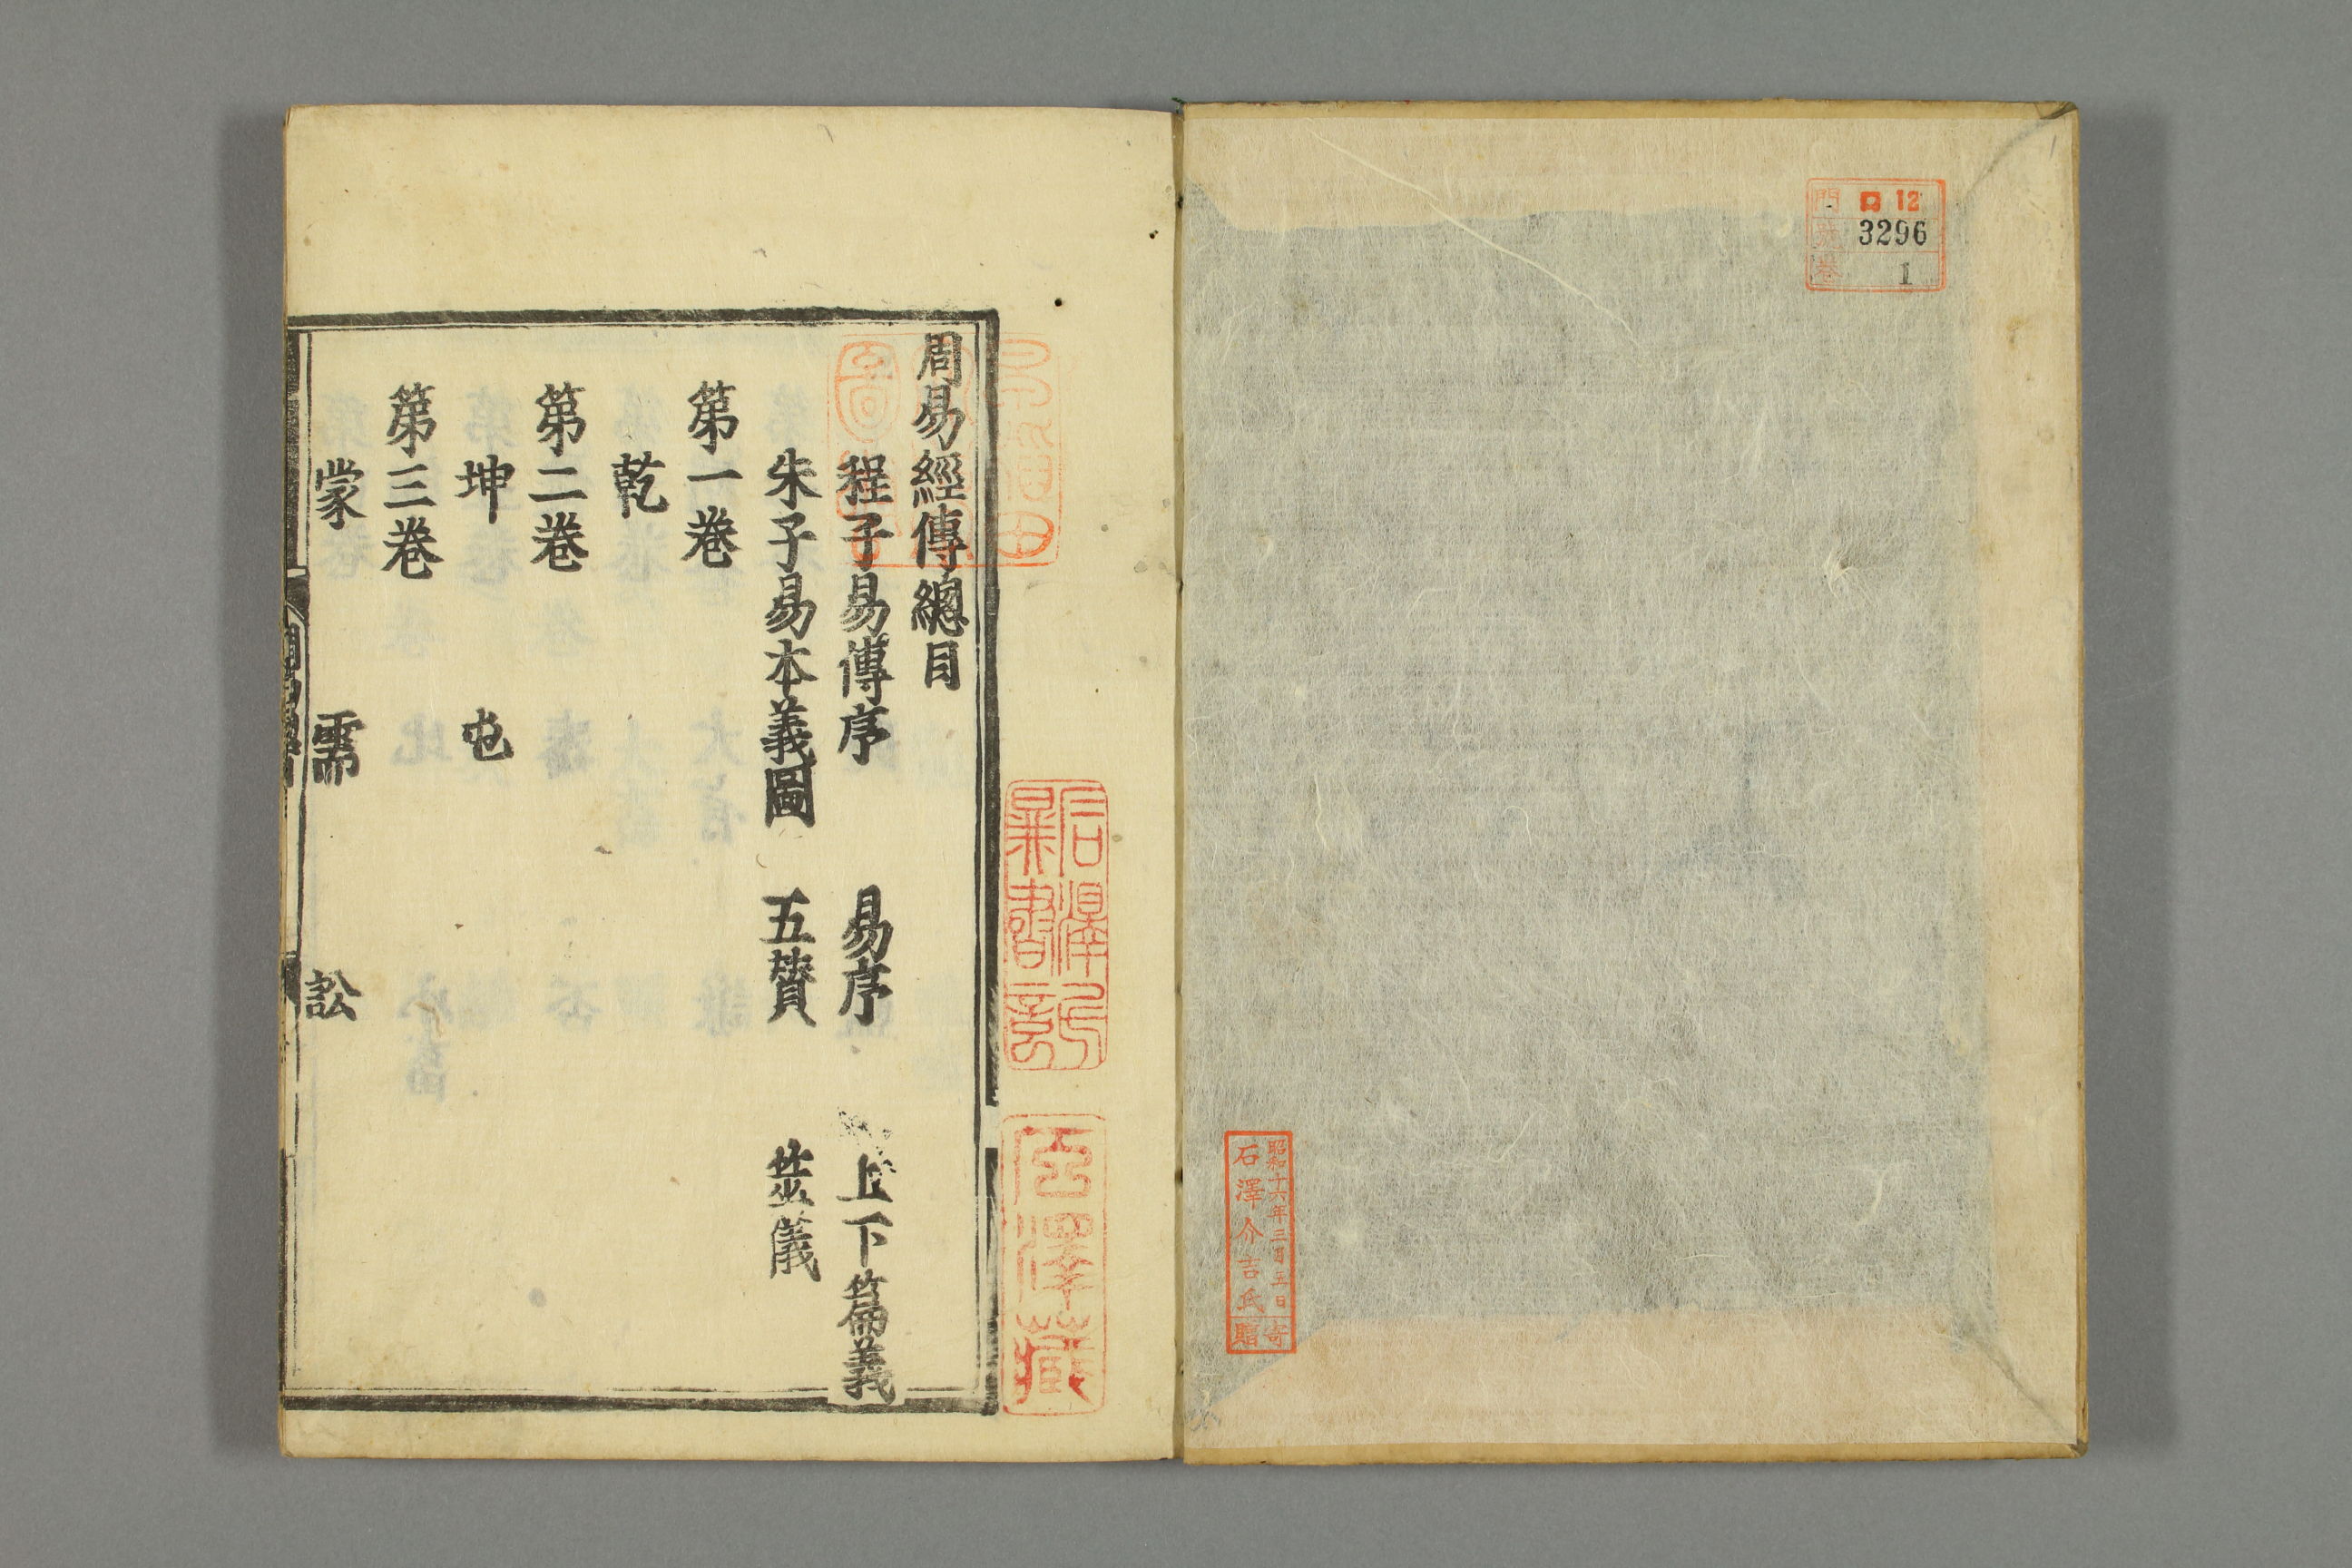 門 ロ 12
号 3296
巻 1
昭和十六年三月五日寄
石澤介吉氏贈
周易經傳總目
程子易傳序 易序 上下篇義
朱子易本義圖 五贊 筮儀
第一卷
乾
第二卷
坤 屯
第三卷
蒙 需 訟
石澤藏